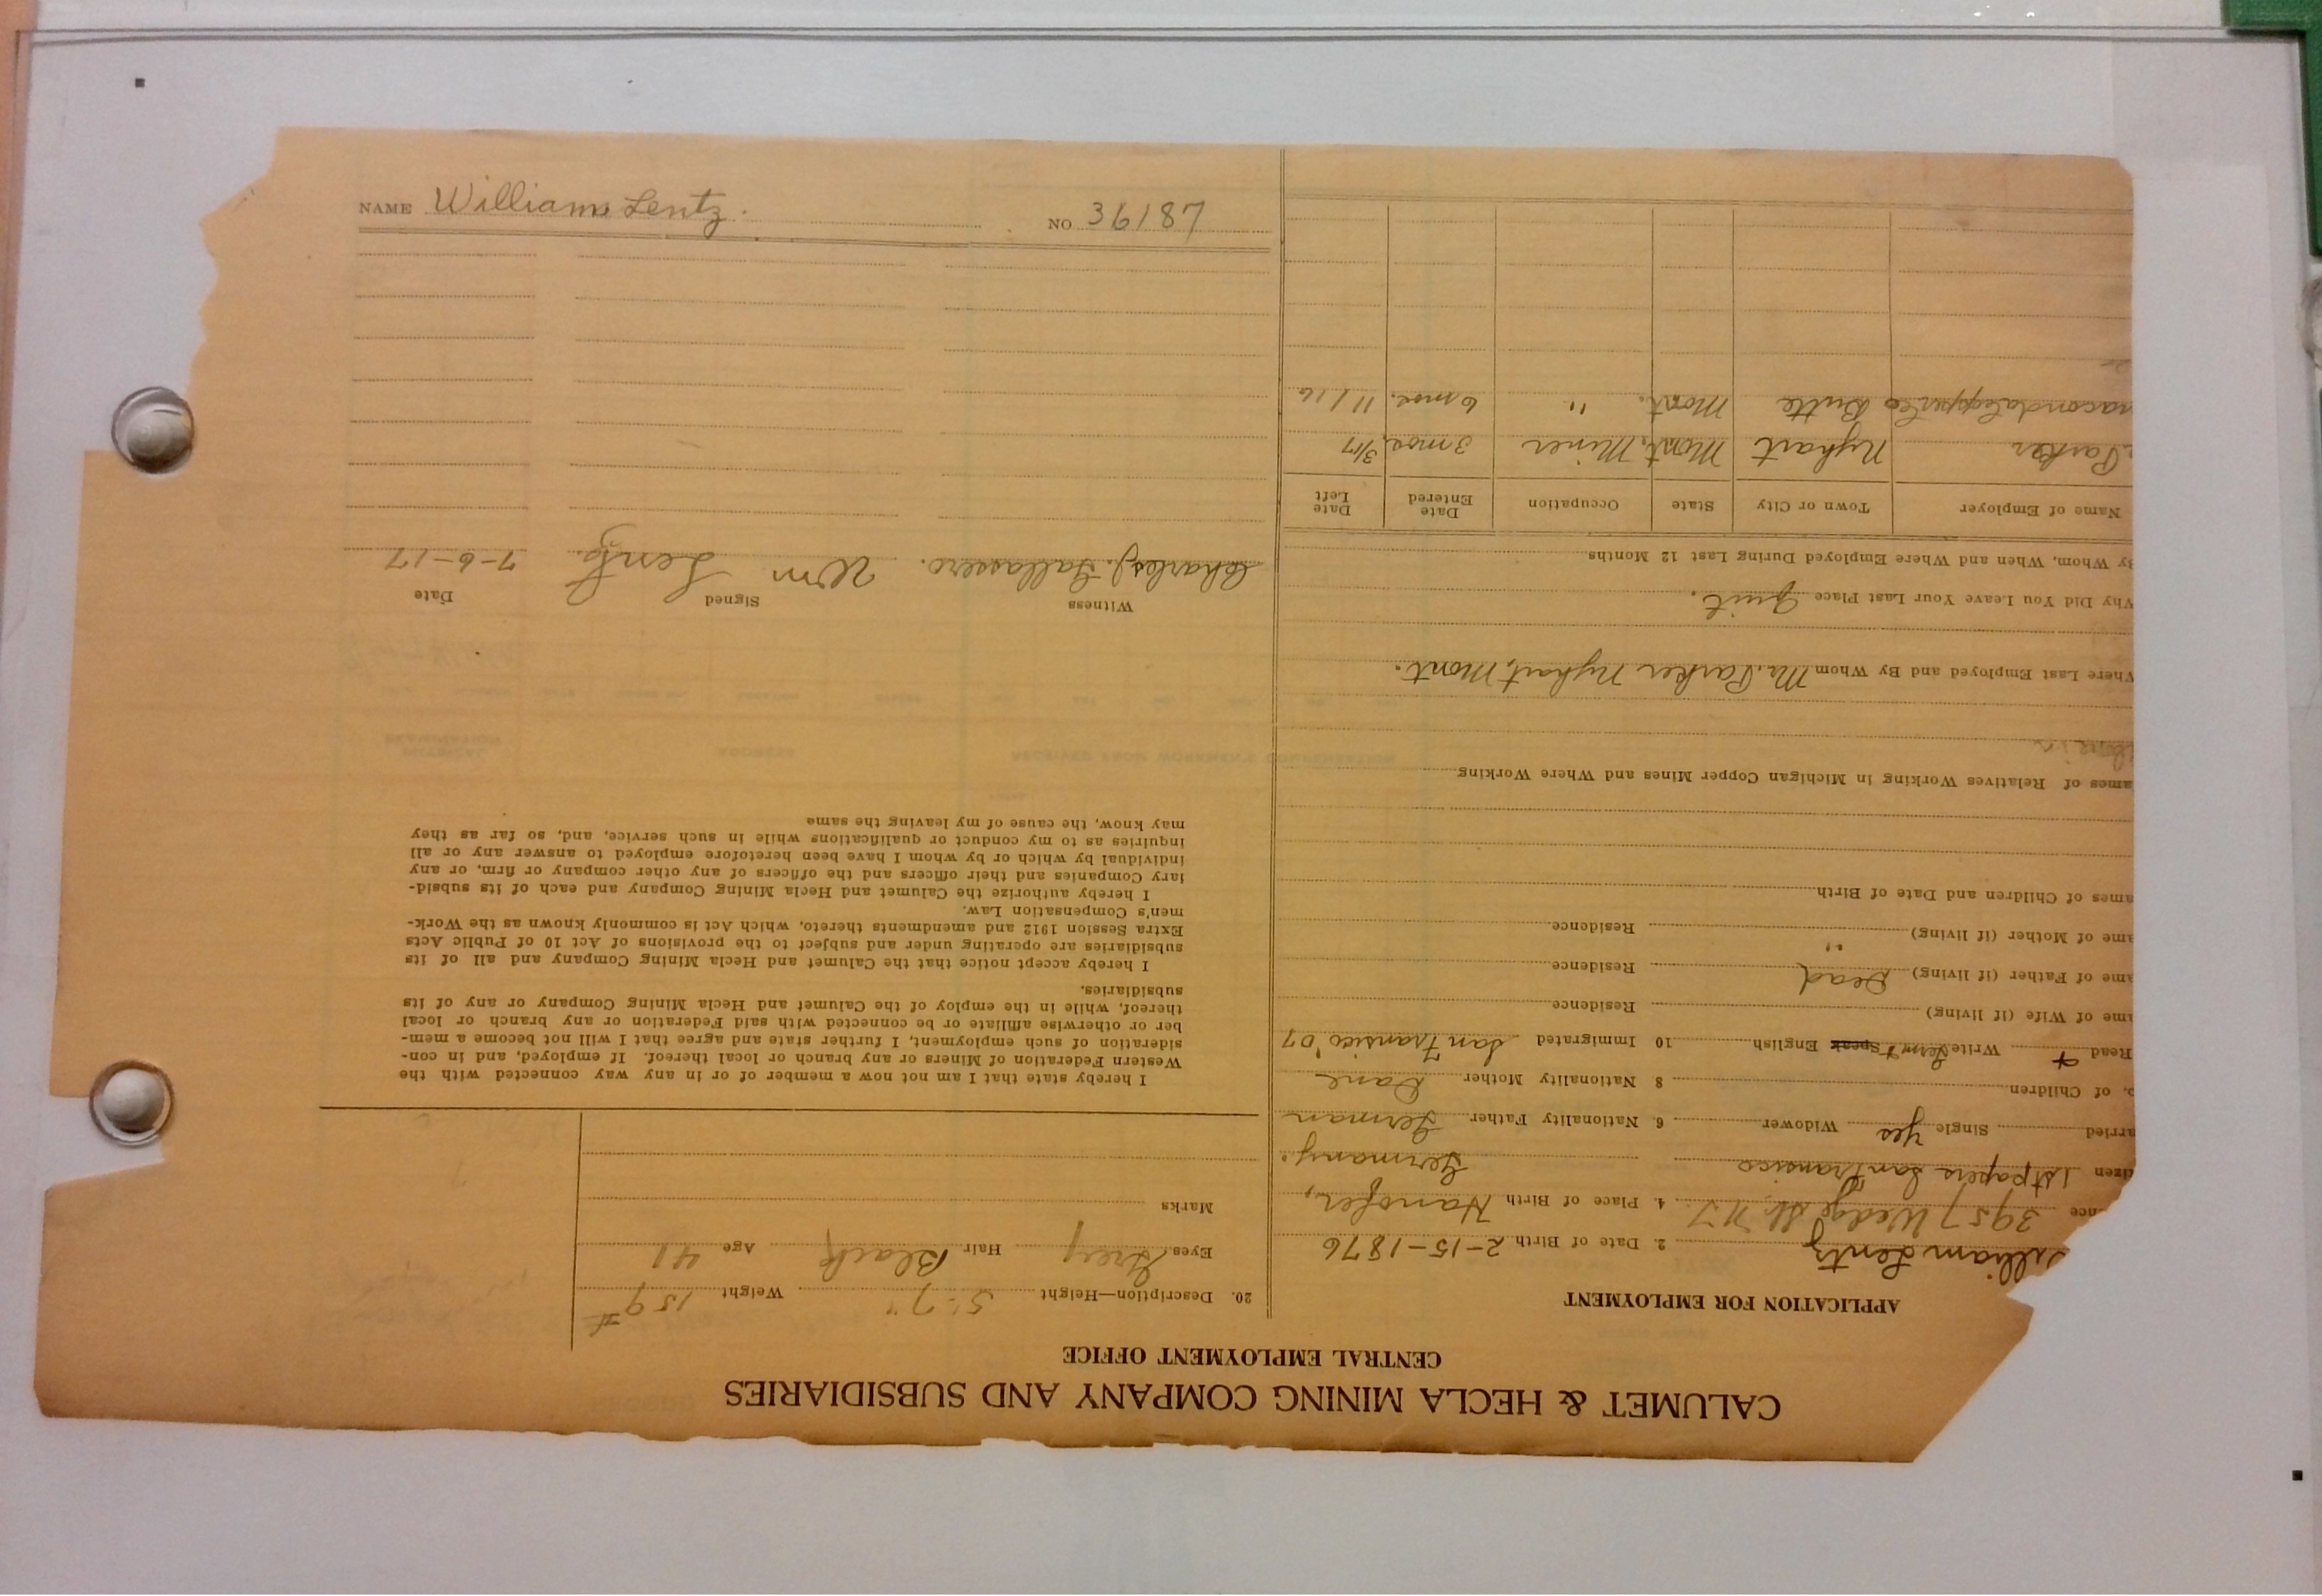 CALUMET & HECLA MINING COMPANY AND SUBSIDIARIES
CENTRAL EMPLOYMENT OFFICE
APPLICATION FOR EMPLOYMENT
William Lentz 2. Date of Birth 2-15-1876
3957 Wedge St. 4. Place of Birth Hanofer,
1st papers San Fransico Germany.
Single yes Widower 6. Nationality Father German
of Children 8 Nationality Mother Dane
Read Write Germ Speak English 10 Immigrated San Fransico '07
of Wife (if living) Residence
of Father (if living) Dead Residence
of Mother (if living) " Residence
of Children and Date of Birth
of Relatives Working in Michigan Copper Mines and Where Working
Where Last Employed and By Whom Mc. Parker Nyhart, Mont.
Why Did You Leave Your Last Place Quit.
By Whom, When and Where Employed During Last 12 Months
Name of Employer Town or City State Occupation Date Entered Date Left
Parker Nyhart Mont. Miner 3 mos. 3/17
Butte Mont. " 6 mos. 11/16
20. Description—Height 5'-7" Weight 159 #
Eyes Grey Hair Black Age 41
Marks
I hereby state that I am not now a member of or in any way connected with the
Western Federation of Miners or any branch or local thereof. If employed, and in con-
sideration of such employment, I further state and agree that I will not become a mem-
ber or otherwise affiliate or be connected with said Federation or any branch or local
thereof, while in the employ of the Calumet and Hecla Mining Company or any of its
subsidiaries.
I hereby accept notice that the Calumet and Hecla Mining Company and all of its
subsidiaries are operating under and subject to the provisions of Act 10 of Public Acts
Extra Session 1912 and amendments thereto, which Act is commonly known as the Work-
men's Compensation Law.
I hereby authorize the Calumet and Hecla Mining Company and each of its subsid-
iary Companies and their officers and the officers of any other company or firm, or any
individual by which or by whom I have been heretofore employed to answer any or all
inquiries as to my conduct or qualifications while in such service, and, so far as they
may know, the cause of my leaving the same
Witness Signed Date
Charles J. Gallassero. Wm Lentz. 7-6-17
NAME William Lentz. NO 36187